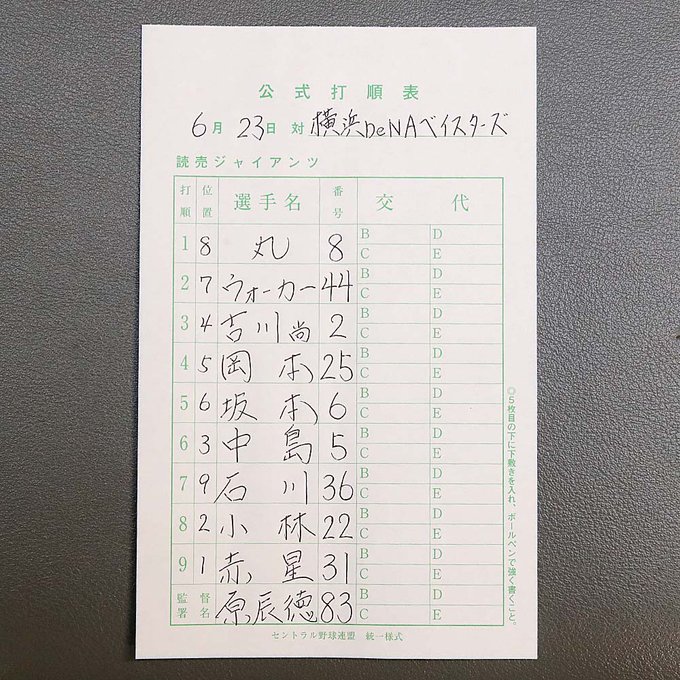 公式打順表
6月23日 対 横浜DeNAベイスターズ
読売ジャイアンツ
打順 位置 選手名 番号 交代
1 8 丸 8 B D C E
2 7 ウォーカー 44 B D C E
3 4 吉川尚 2 B D C E
4 5 岡本 25 B D C E
5 6 坂本 6 B D C E
6 3 中島 5 B D C E
7 9 石川 36 B D C E
8 2 小林 22 B D C E
9 1 赤星 31 B D C E
監督署名 原辰徳 83 B D C E
セントラル野球連盟 統一様式
◎5枚目の下に下敷きを入れ、ボールペンで強く書くこと。